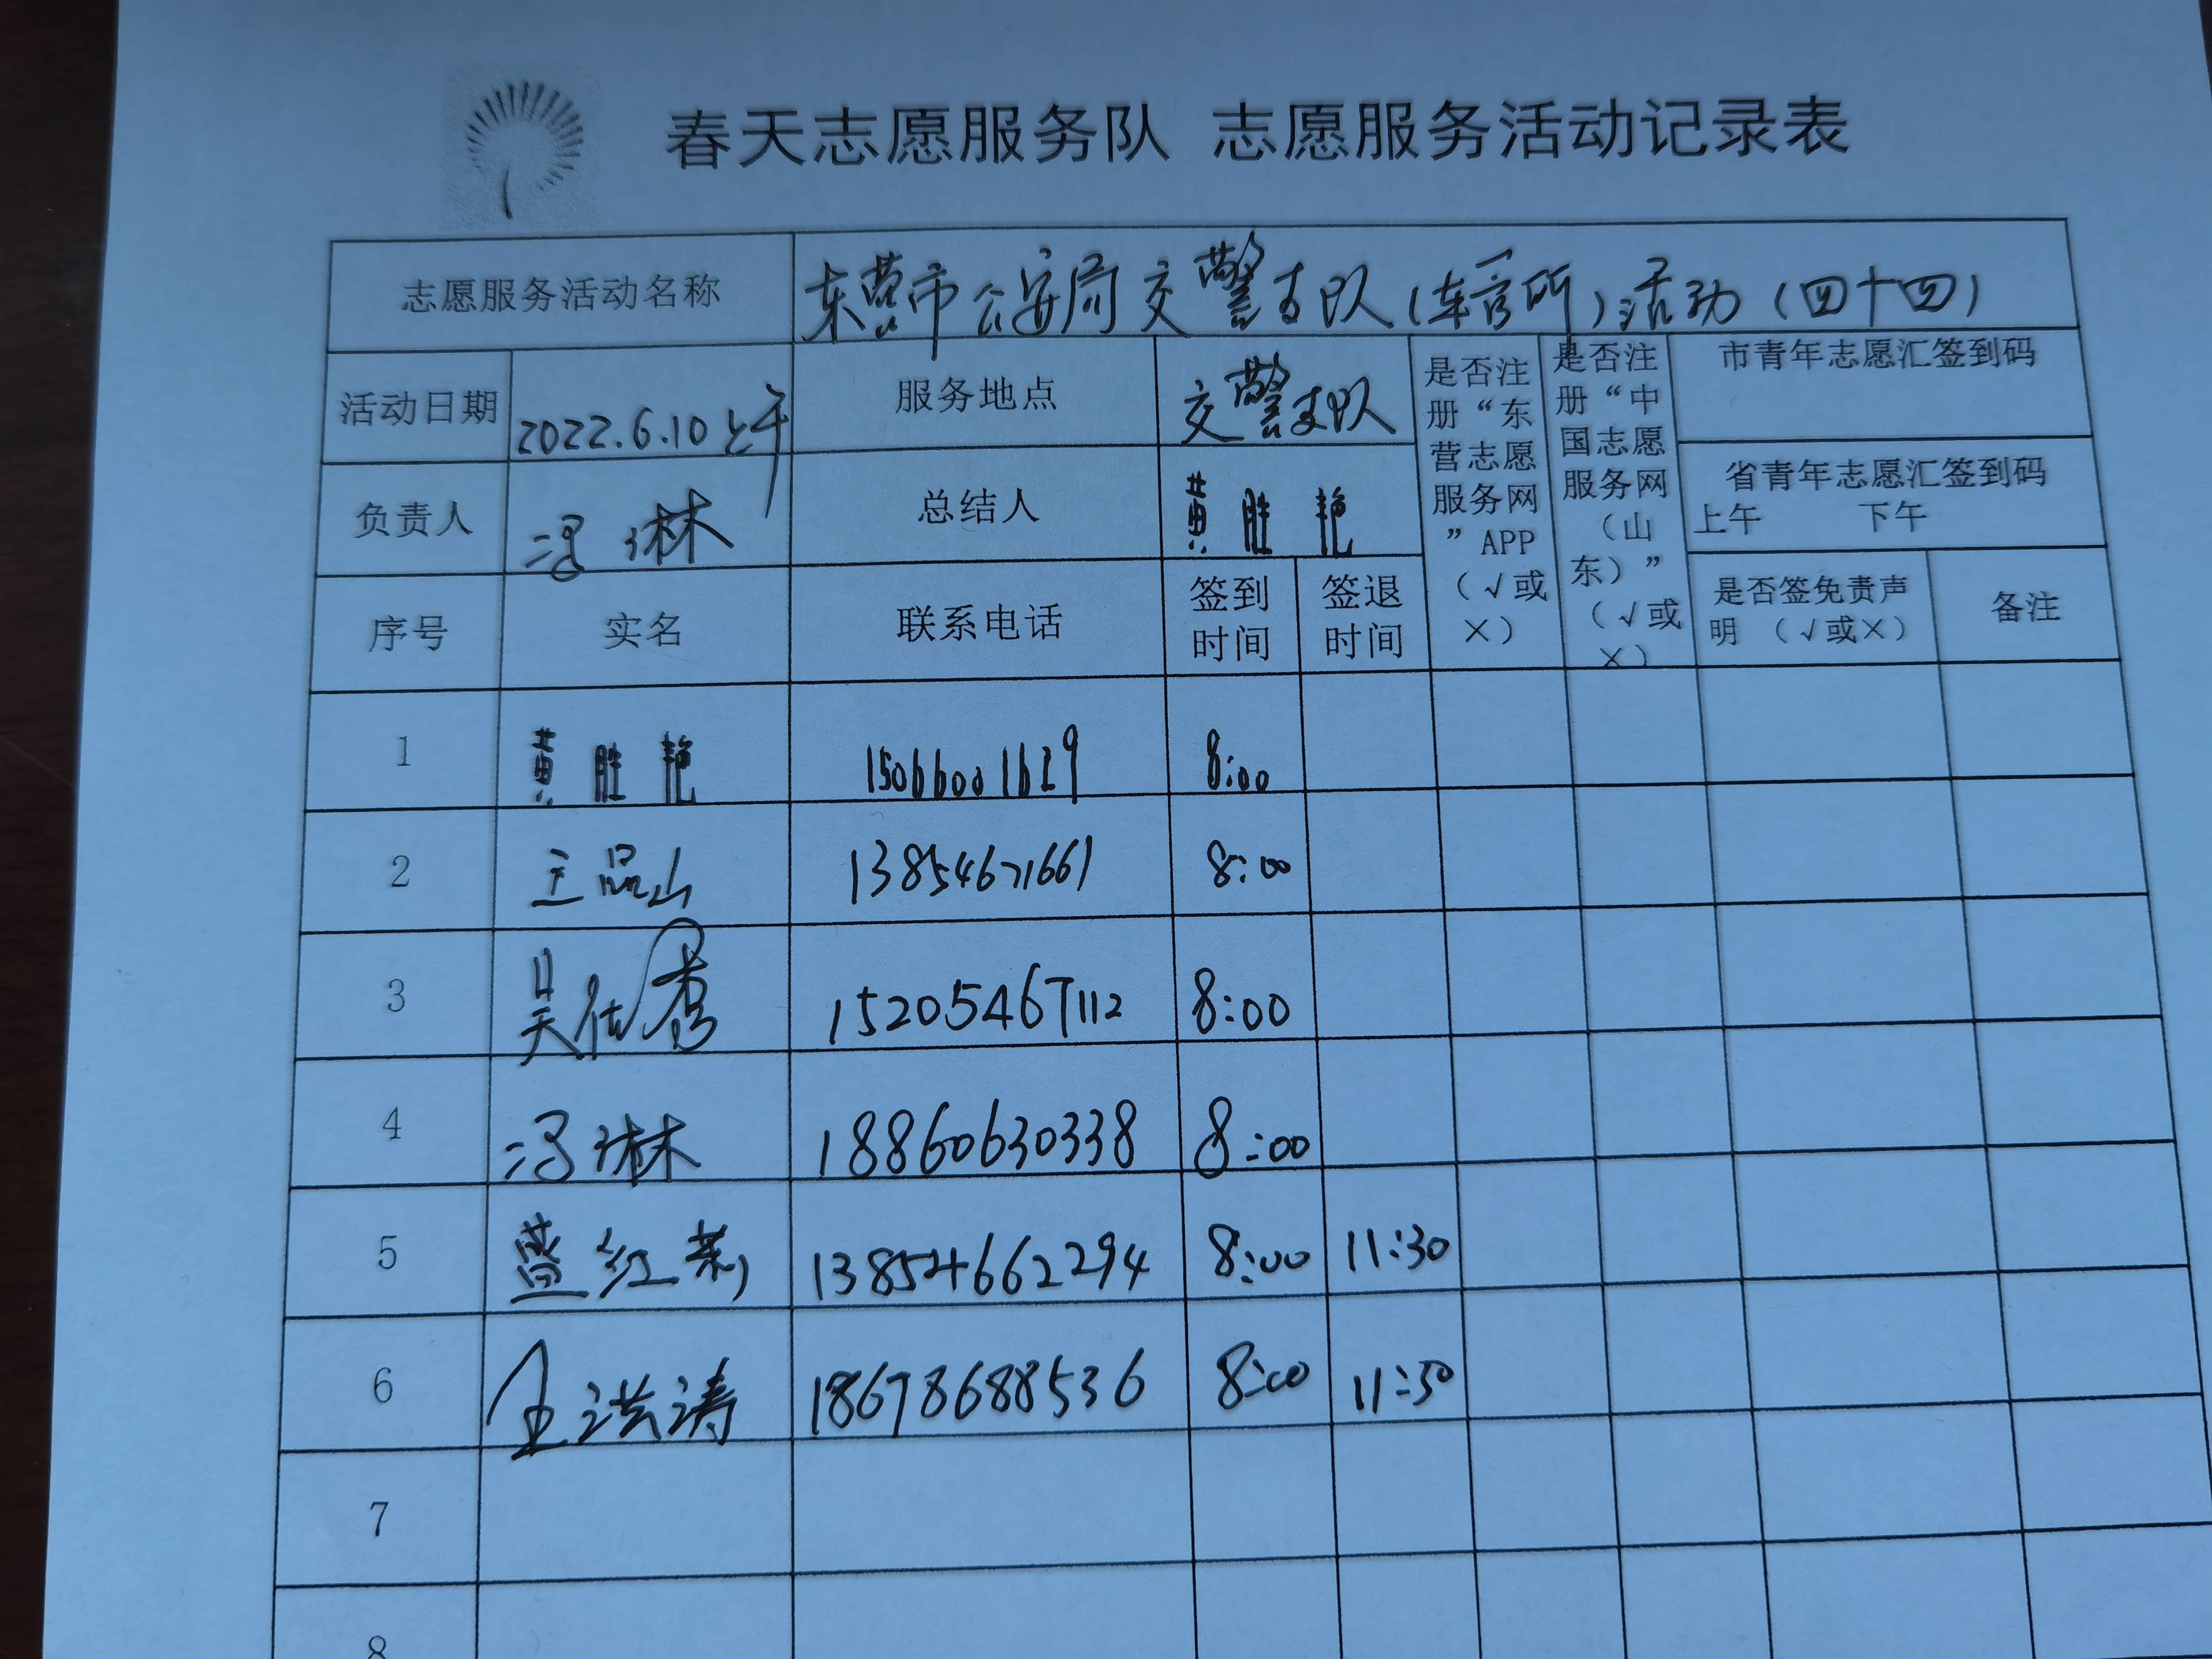 春天志愿服务队 志愿服务活动记录表
志愿服务活动名称 东营市公安局交警支队(车管所)活动(四十四)
活动日期 2022.6.10上午 服务地点 交警支队 是否注册“东营志愿服务网”APP(√或×) 是否注册“中国志愿服务网(山东)”(√或×) 市青年志愿汇签到码
负责人 冯琳 总结人 黄胜艳 省青年志愿汇签到码
上午 下午
序号 实名 联系电话 签到时间 签退时间 是否签免责声明 (√或×) 备注
1 黄胜艳 15066001629 8:00
2 王品山 13854671661 8:00
3 吴仕秀 15205467112 8:00
4 冯琳 18860630338 8:00
5 盖红莉 13854662294 8:00 11:30
6 王洪涛 18678688536 8:00 11:30
7
8